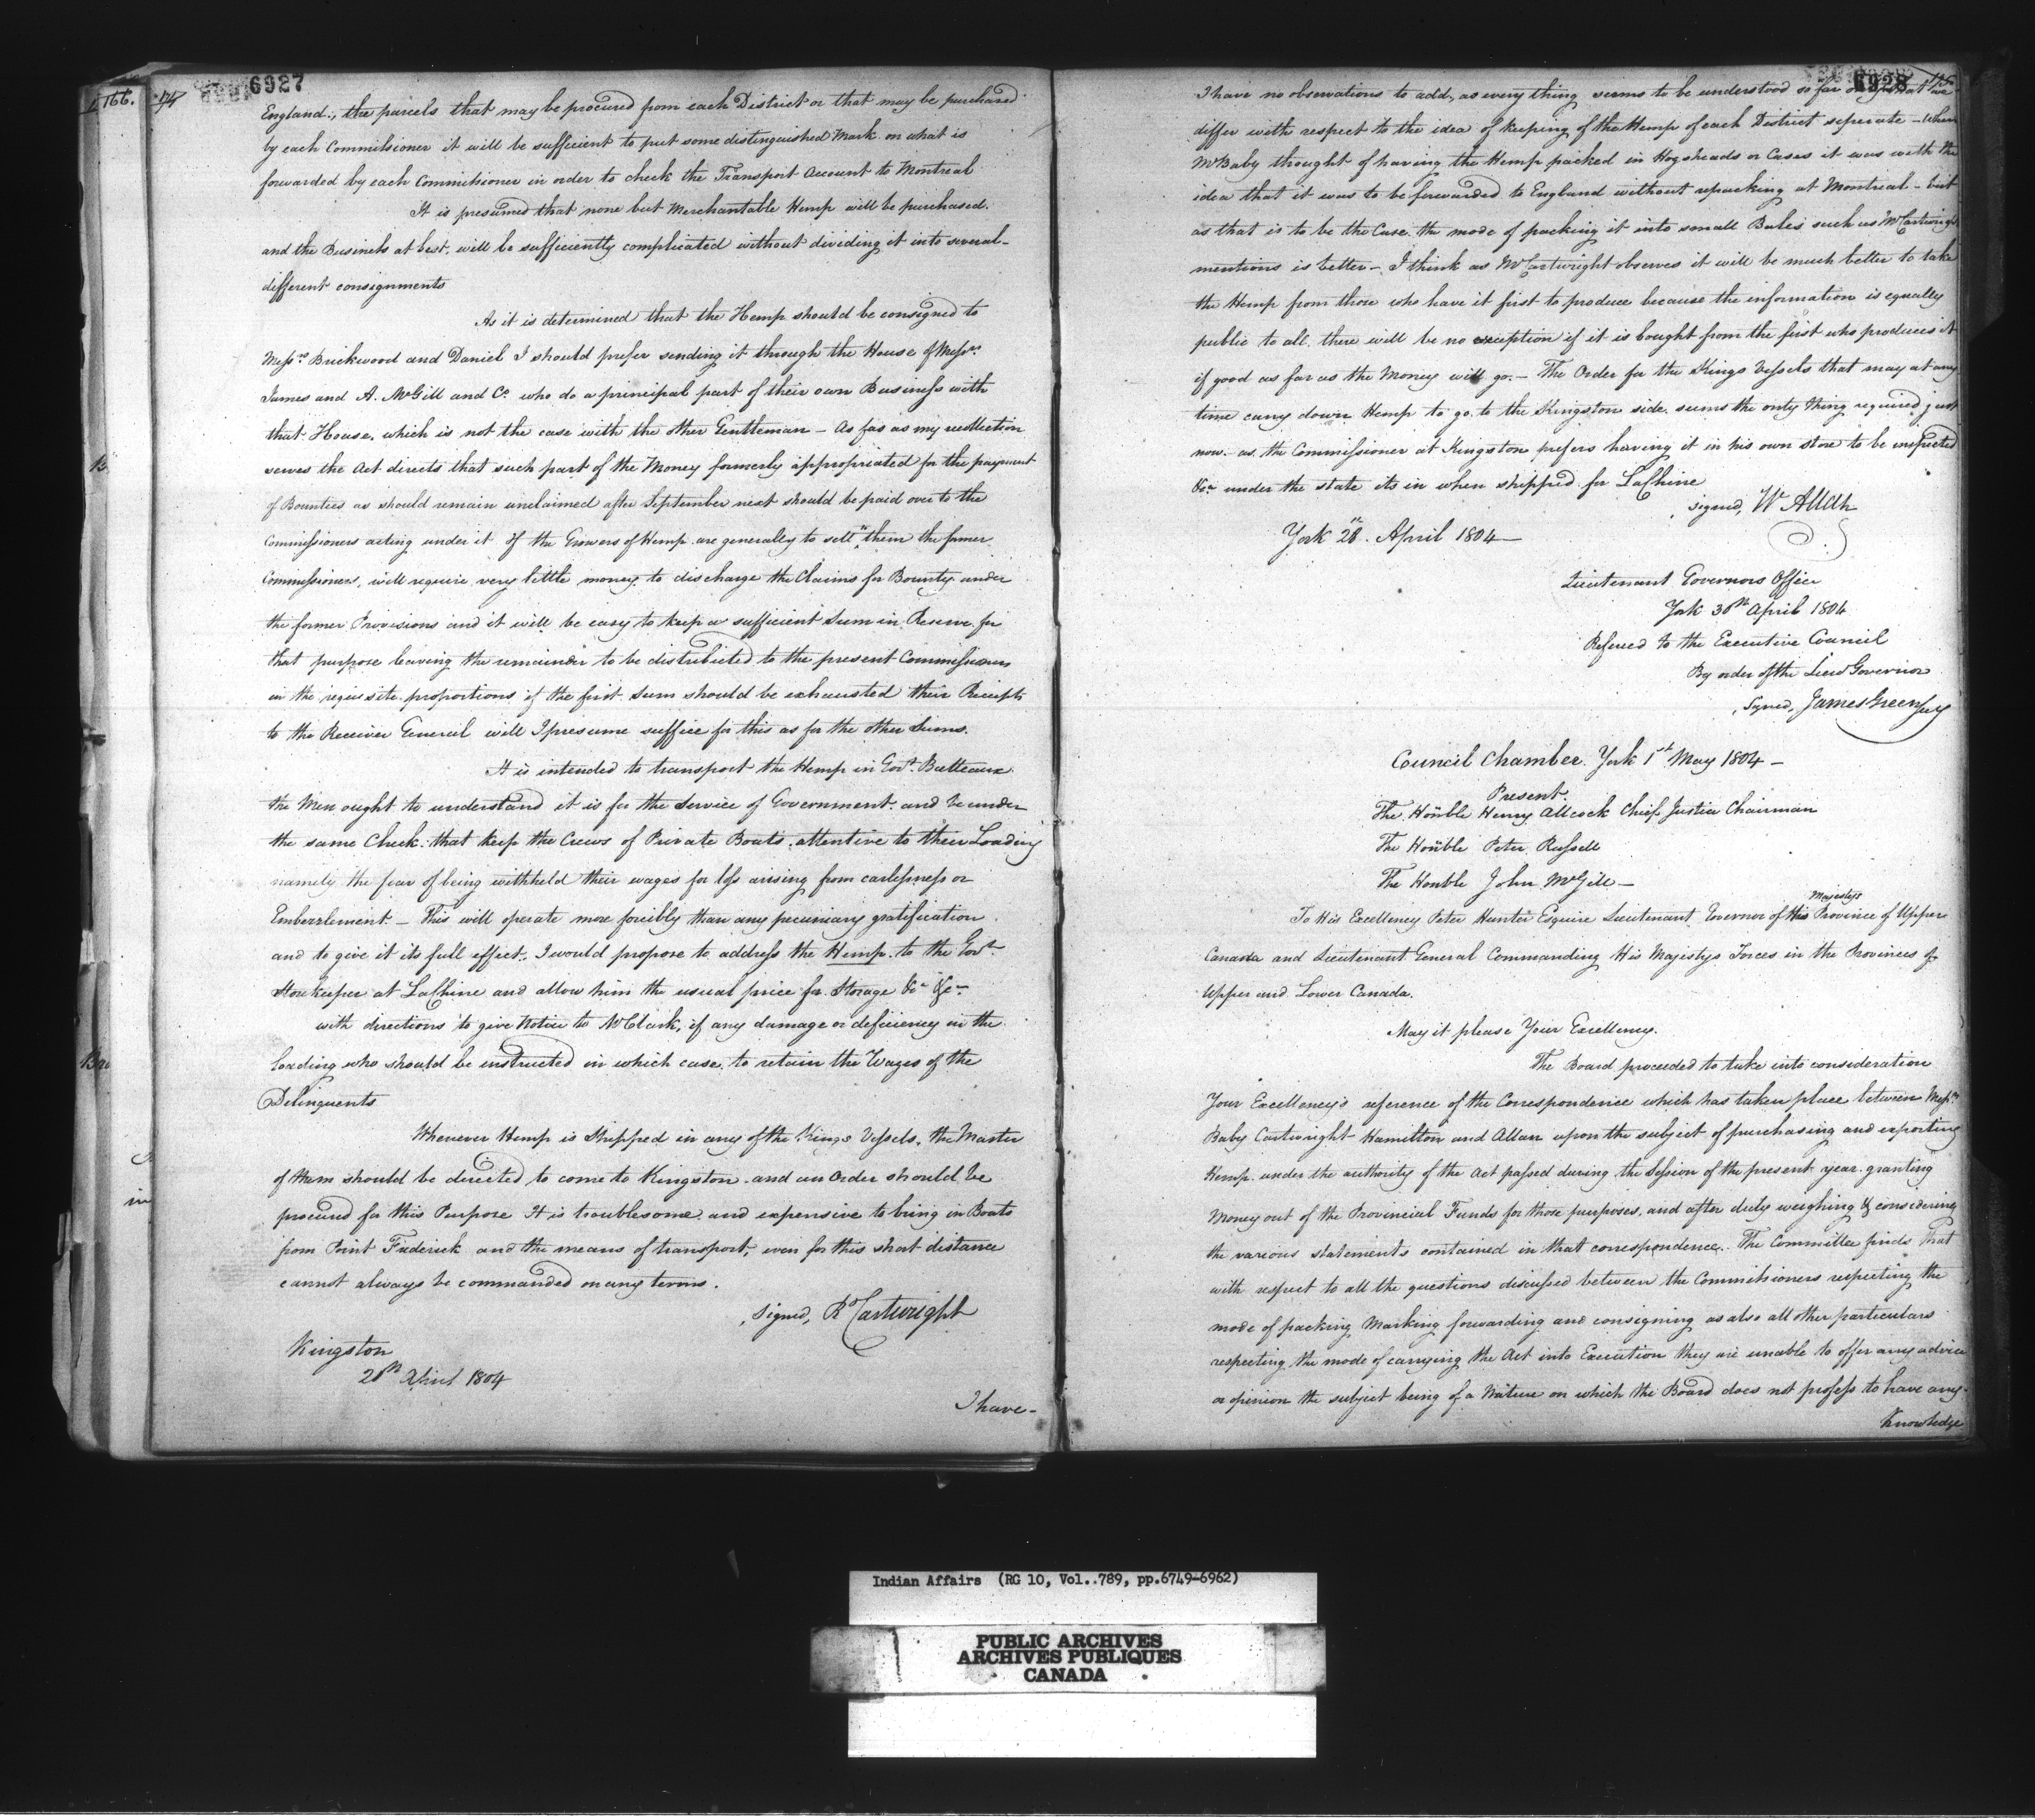 6927
166.
74
England; the parcels that may be procured from each District or that may be purchased
by each Commissioner it will be sufficient to put some distinguished Mark on what is
forwarded by each Commissioner in order to check the Transport Account to Montreal
It is presumed that none but Merchantable Hemp will be purchased.
and the Business at best, will be sufficiently complicated without dividing it into several-
different consignments
As it is determined that the Hemp should be consigned to
Messrs Brickwood and Daniel I should prefer sending it through the House of Messrs
James and A. McGill and Co who do a principal part of their own Business with
that House, which is not the case with the other Gentleman - As far as my recollection
serves the Act directs that such part of the Money formerly appropriated for the payment
of Bounties as should remain unclaimed after September next should be paid over to the
Commissioners acting under it If the Growers of Hemp are generally to sell them the former
Commissioners, will require very little money to discharge the Claims for Bounty under
the former Provisions and it will be easy to keep a sufficient Sum in Reserve for
that purpose leaving the remainder to be distributed to the present Commissioners
in the requisite proportions if the first Sum should be exhausted their Receipts
to the Receiver General will I presume suffice for this as for the other Sums.
It is intended to transport the Hemp in Govt Batteaux
the Men ought to understand it is for the Service of Government and be under
the same Check that keep the Crews of Private Boats attentive to their Loading
namely the fear of being withheld their wages for loss arising from carlessness or
Embezzlement - This will operate more forcibly than any pecuniary gratification
and to give it its full effect, I would propose to address the Hemp to the Govt
Storekeeper at LaChine and allow him the usual price for Storage &c &c
with directions to give Notice to Mr Clark, if any damage or deficiency in the
loading who should be instructed in which case, to retain the Wages of the
Delinquents
Whenever Hemp is Shipped in any of the Kings Vessels, the Master
of them should be directed to come to Kingston and an Order should be
procured for this Purpose It is troublesome and expensive to bring in Boats
from Point Frederick and the means of transport, even for this short distance
cannot always be commanded on any terms.
Signed, Rd Cartwright
Kingston
April 1804
I have -
6928
I have no observations to add, as every thing seems to be understood so far
differ with respect to the idea of keeping of the Hemp of each District seperate - When
Mr Baby thought of having the Hemp packed in Hogsheads or Cases it was with the
idea that it was to be forwarded to England without repacking at Montreal - but
as that is to be the Case the mode of packing it into small Bales such as Mr Cartwright
mentions is better - I think as Mr Cartwright observes it will be much better to take
the Hemp from those who have it first to produce because the information is equally
public to all, there will be no exception if it is bought from the first who produces it
if good as far as the Money will go. - The Order for the Kings Vessels that may at any
time carry down Hemp to go to the Kingston side seems the only thing required just
now - as the Commissioner at Kingston prefers having it in his own store to be inspected
&c under the state its in when shipped for LaChine
Signed, W Allan
York 28 April 1804 -
Lieutenant Governors Office
York 30th April 1804
Refered to the Executive Council
By order of the Lieut Governor
Signed, James Green Secy
Council Chamber York 1st May 1804 -
Present
The Honble Henry Allcock Chief Justice Chairman
The Honble Peter Russell
The Honble John McGill -
To His Excellency Peter Hunter Esquire Lieutenant Governor of His Majestys Province of Upper
Canada and Lieutenant General Commanding His Majestys Forces in the Provinces of
Upper and Lower Canada.
May it please Your Excellency.
The Board proceeded to take into consideration
Your Excellency's reference of the Correspondence which has taken place between Messrs
Baby Cartwright Hamilton and Allan upon the subject of purchasing and exporting
Hemp under the authority of the Act passed during the Session of the present year granting
Money out of the Provincial Funds for those purposes, and after duly weighing & considering
the various statements contained in that correspondence. The Committee finds That
with respect to all the questions discussed between the Commissioners respecting the
mode of packing Marking forwarding and consigning as also all other particulars
respecting the mode of carrying the Act into Execution they are unable to offer any advice
or opinion the subject being of a Nature on which the Board does not profess to have any -
Knowledge
Indian Affairs (RG 10, Vol..789, pp.6749-6962)
PUBLIC ARCHIVES
ARCHIVES PUBLIQUES
CANADA